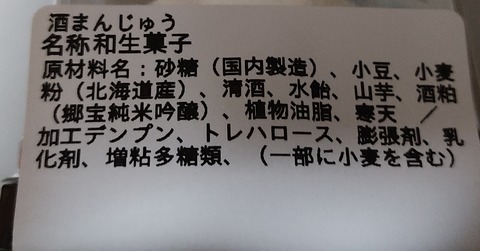 酒まんじゅう
名称和生菓子
原材料名：砂糖（国内製造）、小豆、小麦
粉（北海道産）、清酒、水飴、山芋、酒粕
（郷宝純米吟醸）、植物油脂、寒天　／
加工デンプン、トレハロース、膨張剤、乳
化剤、増粘多糖類、（一部に小麦を含む）